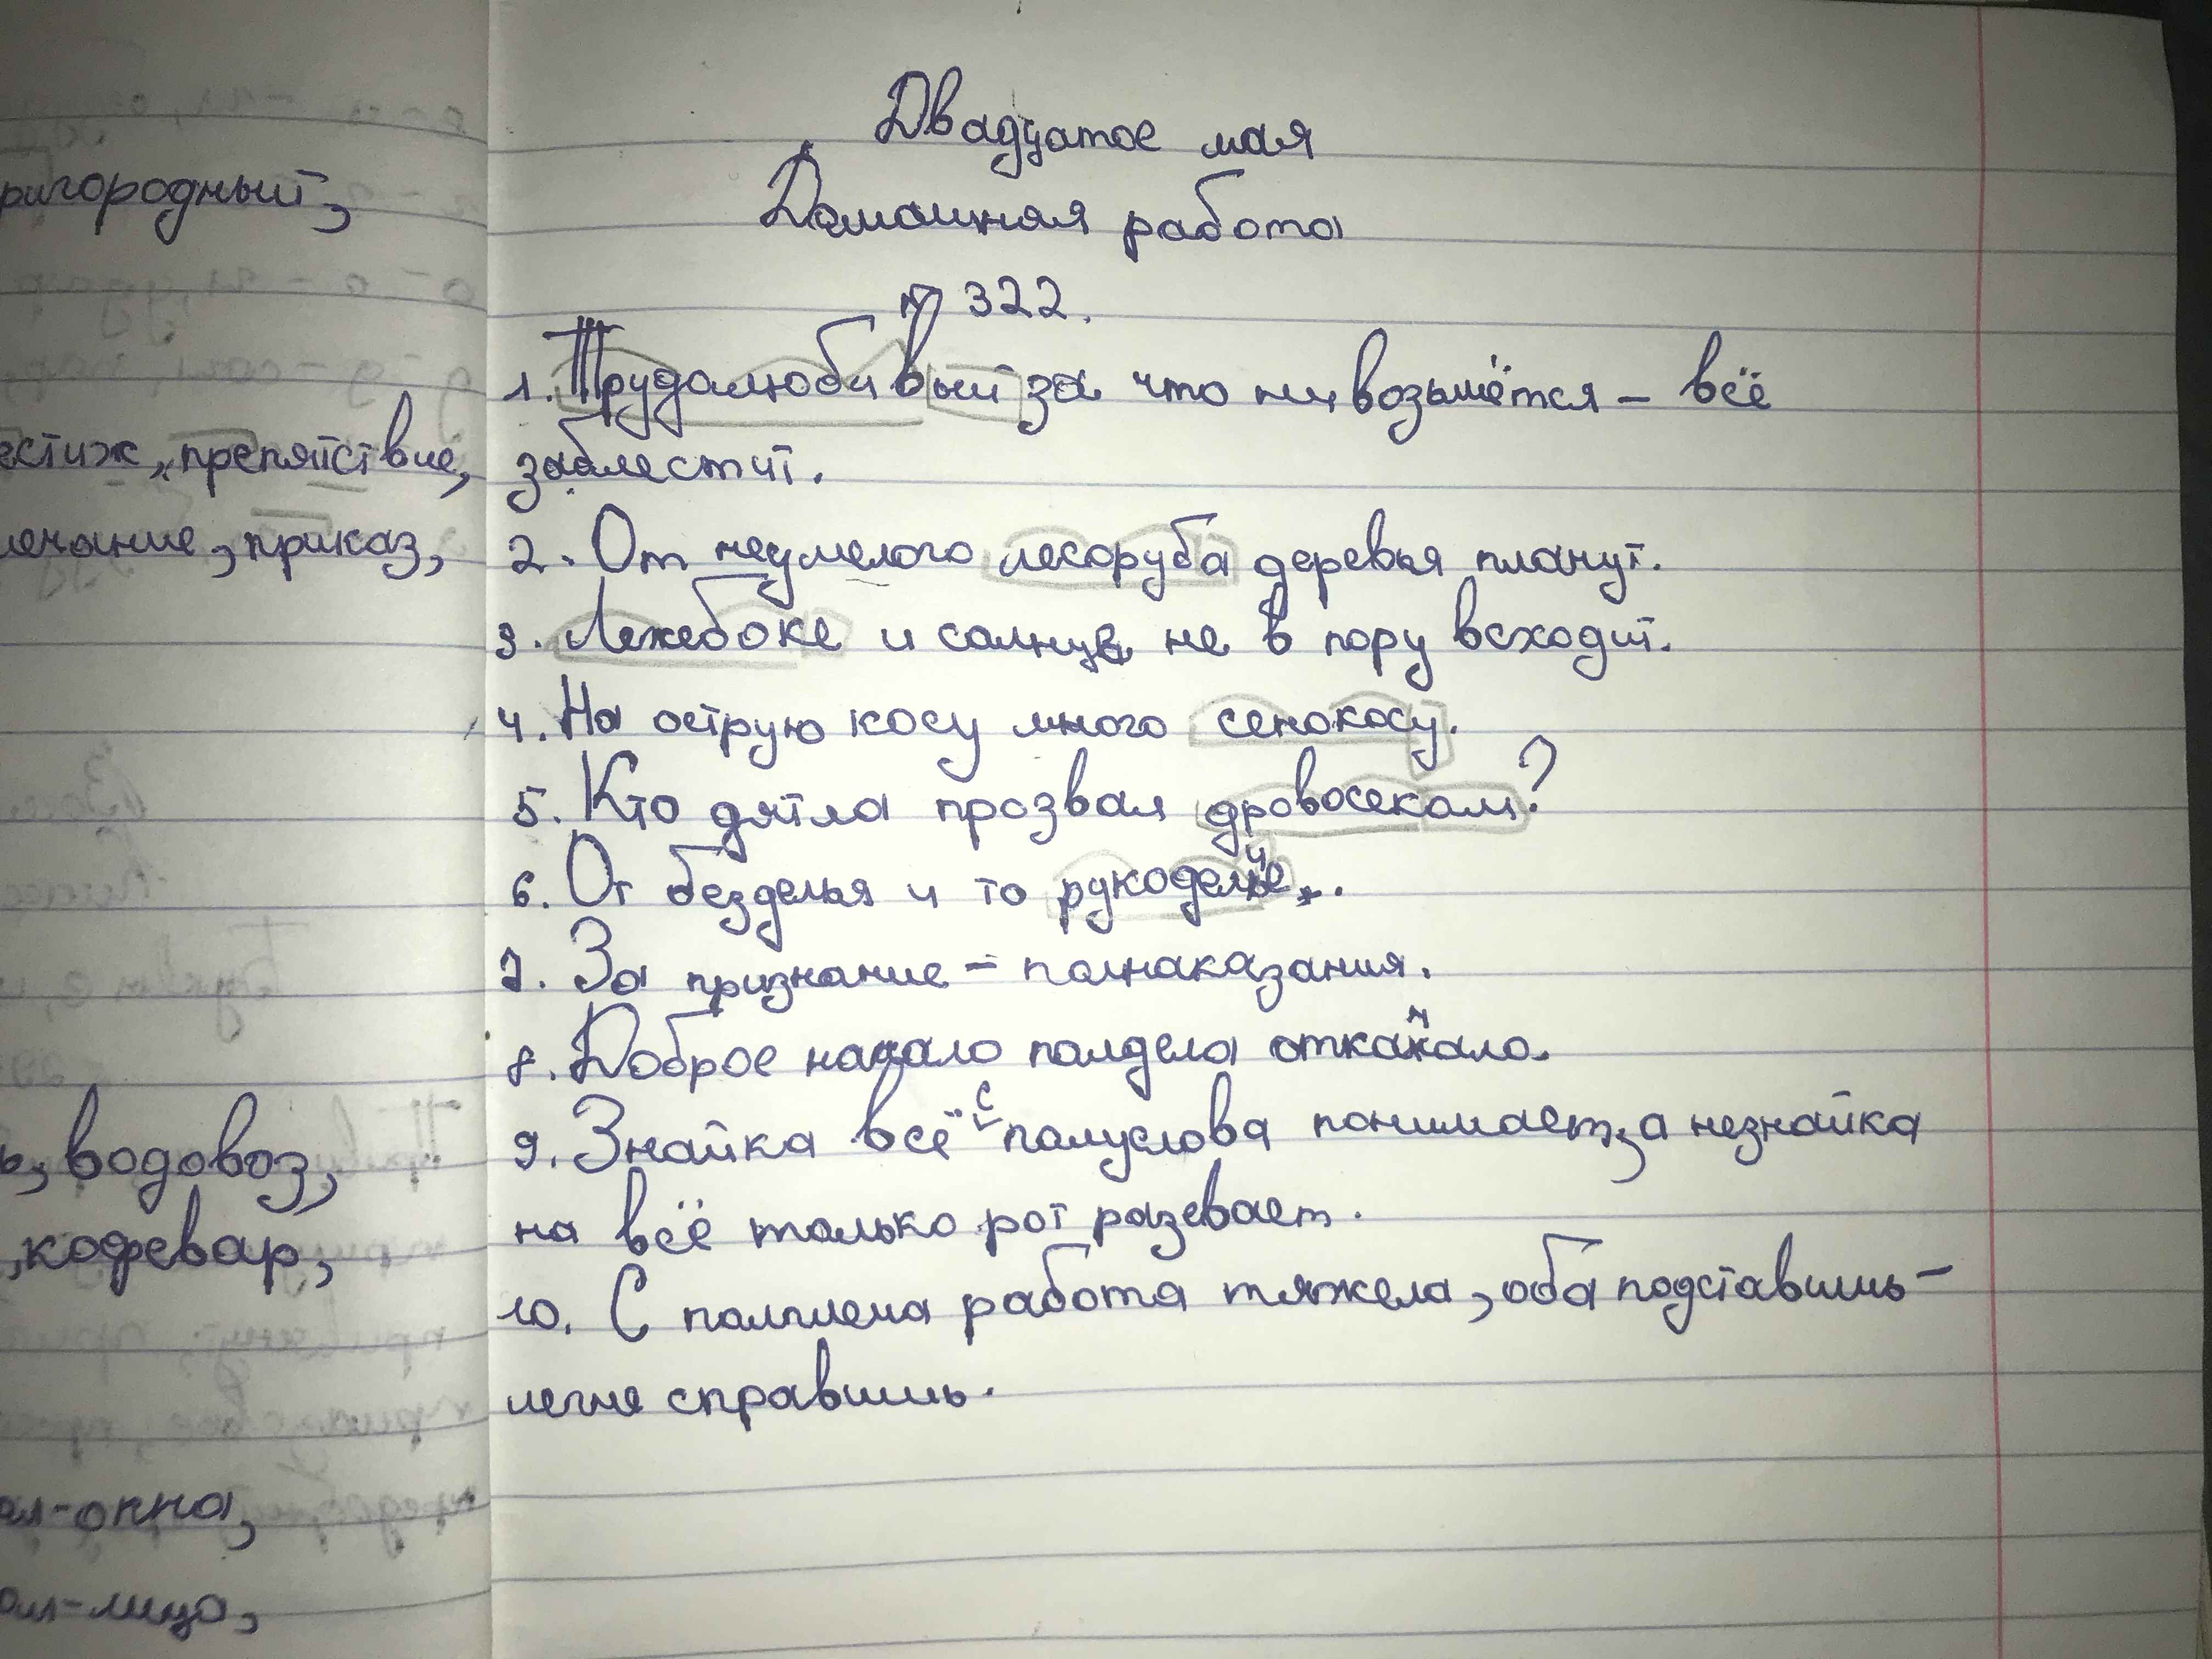 ригородный,
естиж, препятствие,
мечание, приказ,
водовоз,
,кофевар,
ол-окна,
ол-лица,
Двадцатое мая
Домашняя работа
№ 322.
1. Трудолюбивый за что ни возьмётся – всё
заблестит.
2. От неумелого лесоруба деревья плачут.
3. Лежебоке и солнце не в пору всходит.
4. На острую косу много сенокосу.
5. Кто дятла прозвал дровосеком?
6. От безделья и то рукоделие.
7. За признание – полнаказания.
8. Доброе начало полдела откачало.
9. Знайка всё с полуслова понимает, а незнайка
на всё только рот разевает.
10. С полплеча работа тяжела, оба подставишь –
легче справишь.